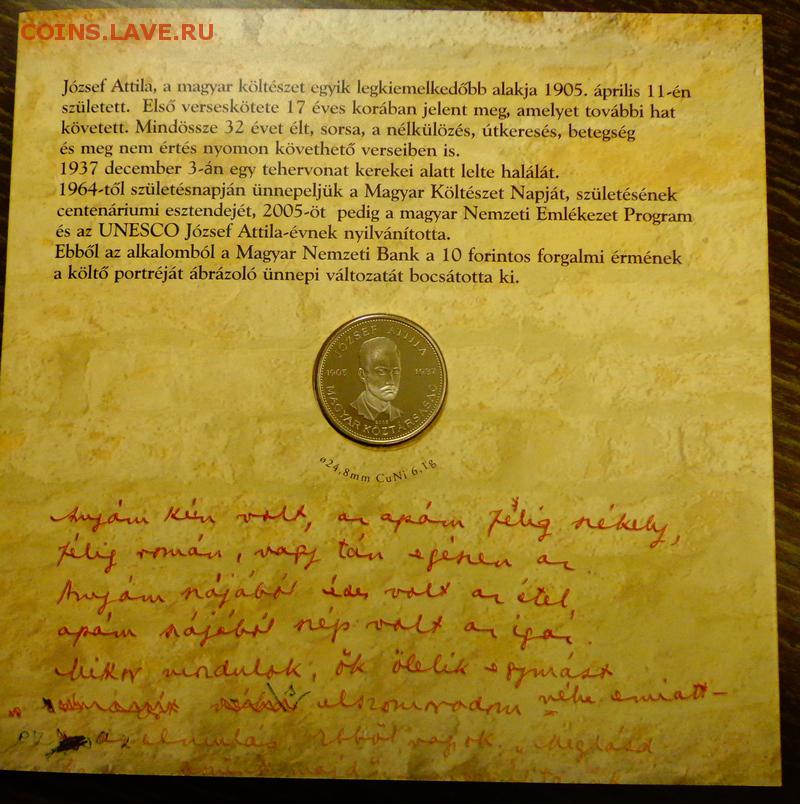 COINS.LAVE.RU
József Attila, a magyar költészet egyik legkiemelkedőbb alakja 1905. április 11-én
született. Első verseskötete 17 éves korában jelent meg, amelyet további hat
követett. Mindössze 32 évet élt, sorsa, a nélkülözés, útkeresés, betegség
és meg nem értés nyomon követhető verseiben is.
1937 december 3-án egy tehervonat kerekei alatt lelte halálát.
1964-től születésnapján ünnepeljük a Magyar Költészet Napját, születésének
centenáriumi esztendejét, 2005-öt pedig a magyar Nemzeti Emlékezet Program
és az UNESCO József Attila-évnek nyilvánította.
Ebből az alkalomból a Magyar Nemzeti Bank a 10 forintos forgalmi érmének
a költő portréját ábrázoló ünnepi változatát bocsátotta ki.
JÓZSEF ATTILA
1905 1937
MAGYAR KÖZTÁRSASÁG
ø24,8mm CuNi 6,1g
Anyám kún volt, az apám félig székely,
félig román, vagy tán egészen az.
Anyám szájából édes volt az étel,
apám szájából szép volt az igaz.
Mikor mozdulok, ők ölelik egymást
elszomorodom néha emiatt –
az elmulás. Ebből vagyok. „Meglásd